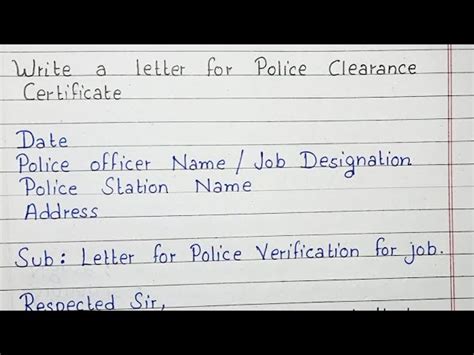 Write a letter for Police Clearance
Certificate
Date
Police officer Name / Job Designation
Police Station Name
Address
Sub : Letter for Police Verification for job.
Respected Sir,